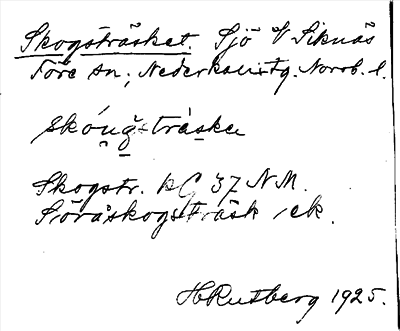 Skogsträsket. Sjö V Siknäs
Töre sn., Nederkalix tg. Norrb. l.
skóu̯g̯strä̀ske
Skogstr. kG 37 NM.
Söråskogsträsk ek.
HRutberg 1925.